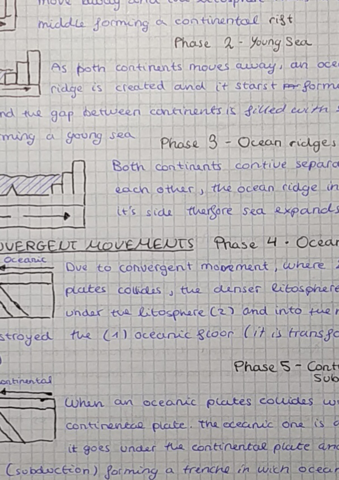 move away and the
middle forming a continental rift
Phase 2 - Young Sea
As both continents moves away, an oce
ridge is created and it starst forme
nd the gap between continents is filled with s
ming a young sea
Phase 3 - Ocean ridges
Both continents contive separa
each other, the ocean ridge in
it's side therfore sea expands
OVERGENT MOVEMENTS Phase 4 - Ocean
Oceanic
Due to convergent movement, where 2
plates collides, the denser litosphere
under the litosphere (2) and into the m
stroyed the (1) oceanic floor (it is transfo
Phase 5 - Cont
Sub
ontinental
When an oceanic plates collides w
continental plate. the oceanic one is d
it goes under the continental plate and
(subduction) forming a trenche in wich ocean